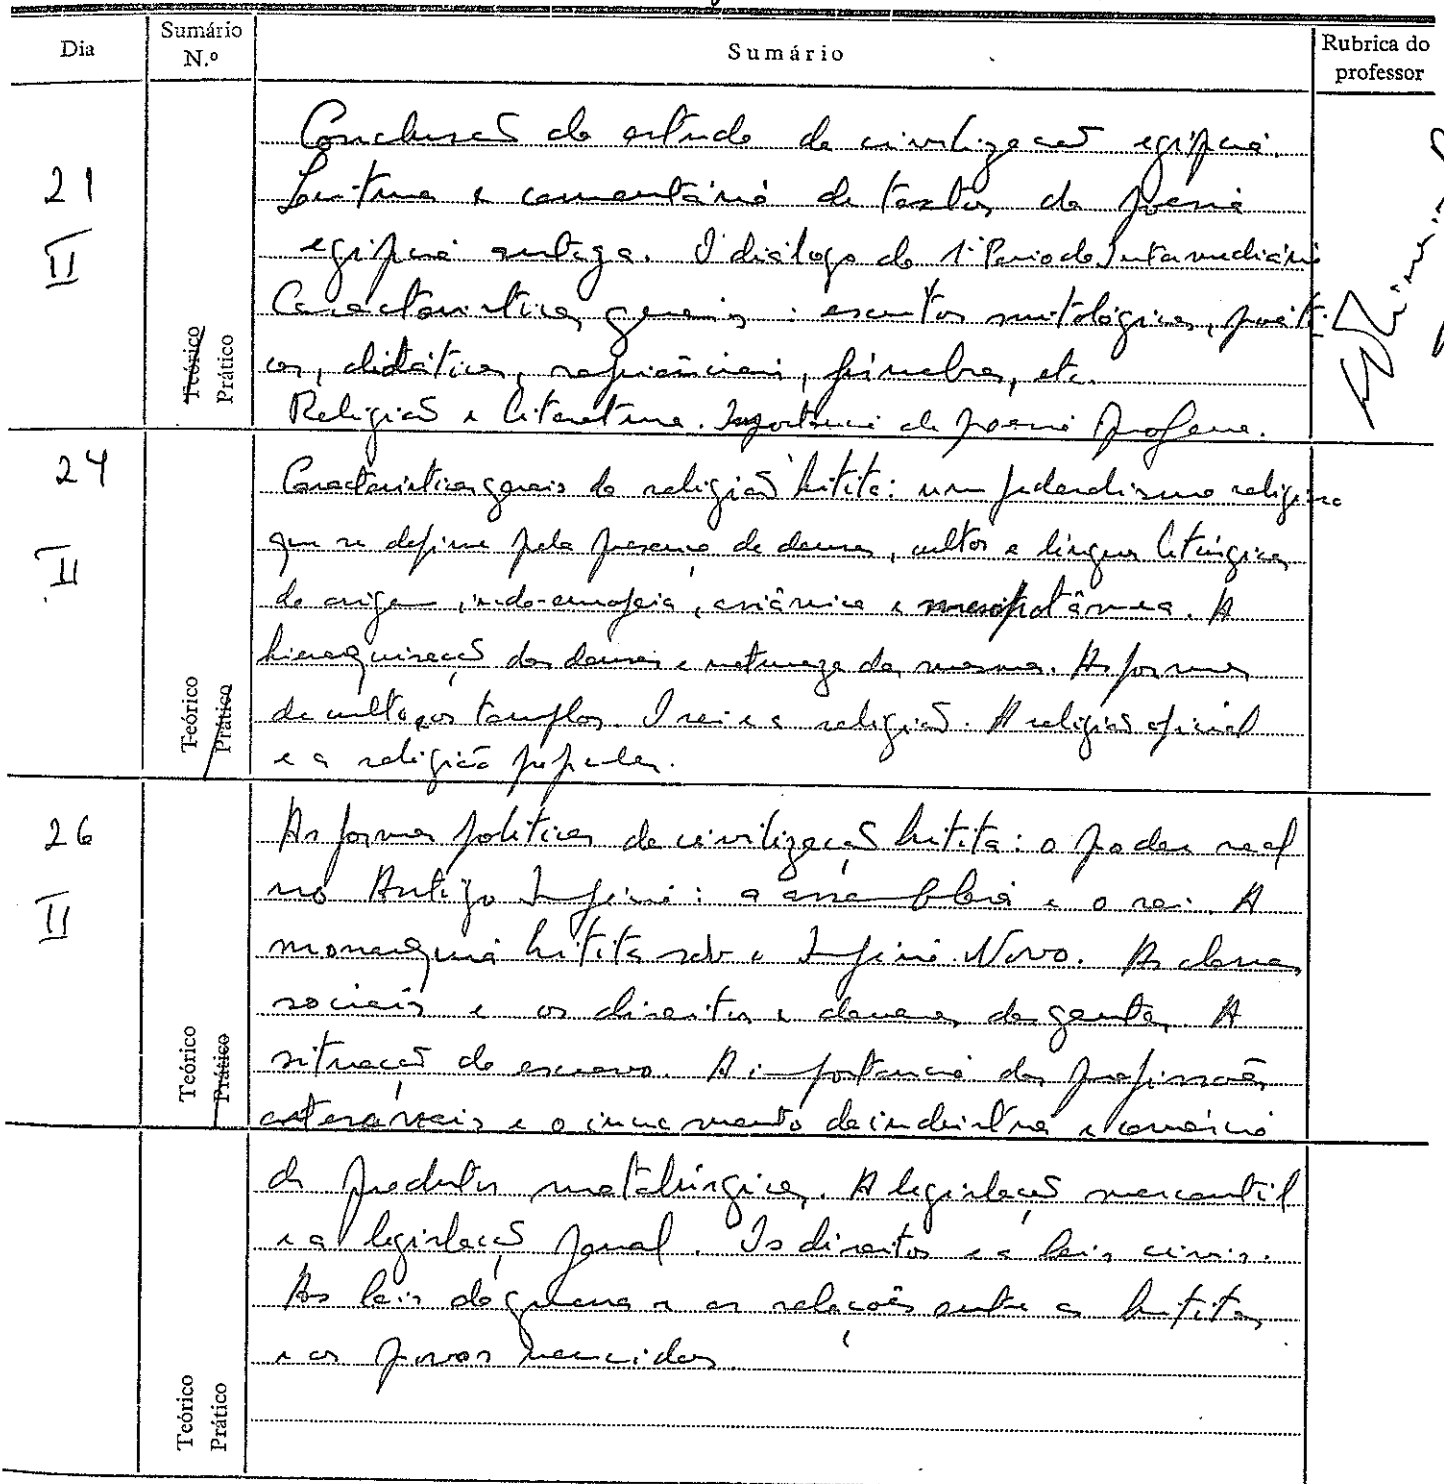 Dia
Sumário N.º
Sumário
Rubrica do professor
21 II
Teórico Prático
Conclusão do estudo da civilização egípcia.
Leitura e comentário de textos da poesia
egípcia antiga. O diálogo do 1º Período Intermediário
Características gerais: escritos mitológicos, poéti-
cos, didáticos, sapienciais, fúnebres, etc.
Religião e literatura. Importância da poesia profana.
24 II
Teórico Prático
Características gerais da religião hitita: um federalismo religioso
que se define pela presença de deuses, cultos e línguas litúrgicas
de origem indo-europeia, asiânica e mesopotâmica. A
hierarquização dos deuses e natureza dos mesmos. As formas
de culto, os templos. O rei e a religião. A religião oficial
e a religião popular.
26 II
Teórico Prático
As formas políticas da civilização hitita: o poder real
no Antigo Império: a assembleia e o rei. A
monarquia hitita sob o Império Novo. As classes
sociais e os direitos e deveres das gentes. A
situação do escravo. A importância das profissões
artesanais e o incremento da indústria e comércio
Teórico Prático
de produtos metalúrgicos. A legislação mercantil
e a legislação penal. Os direitos e as leis civis.
As leis da guerra e as relações entre os hititas
e os povos vencidos.